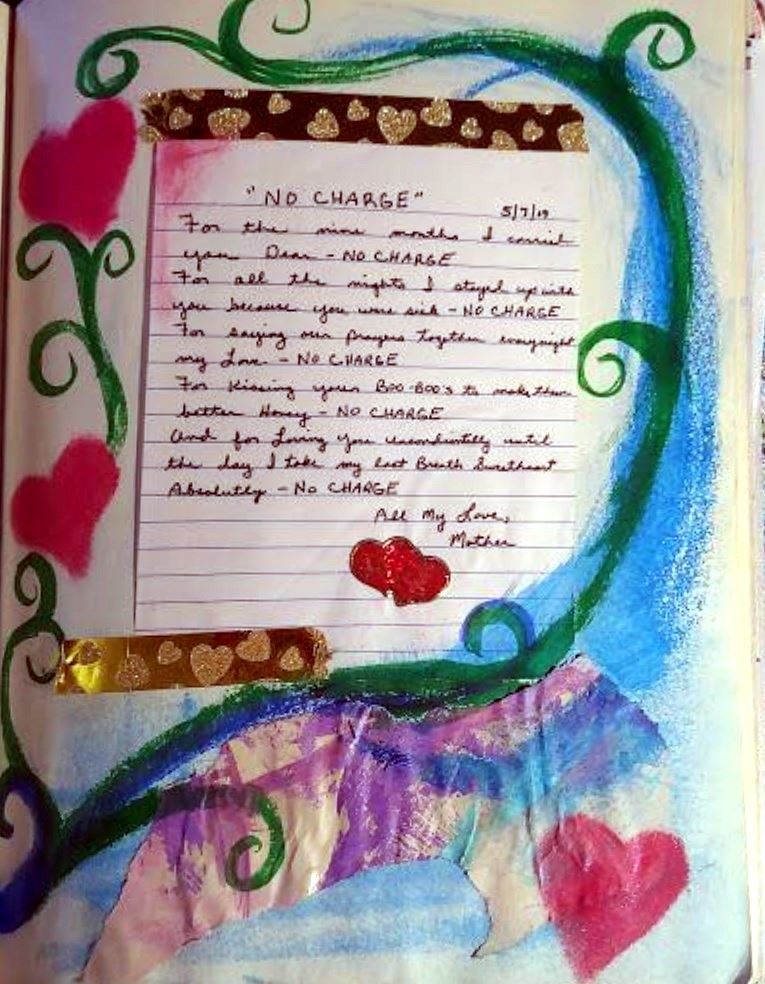 "NO CHARGE"
5/7/19
For the nine months I carried
you Dear - NO CHARGE
For all the nights I stayed up with
you because you were sick - NO CHARGE
For saying our prayers together everynight
my Love - NO CHARGE
For Kissing your BOO-BOO's to make them
better Honey - NO CHARGE
And for Loving you uncondintilly until
the day I take my last Breath Sweetheart
Absolutly - NO CHARGE
All My Love,
Mother